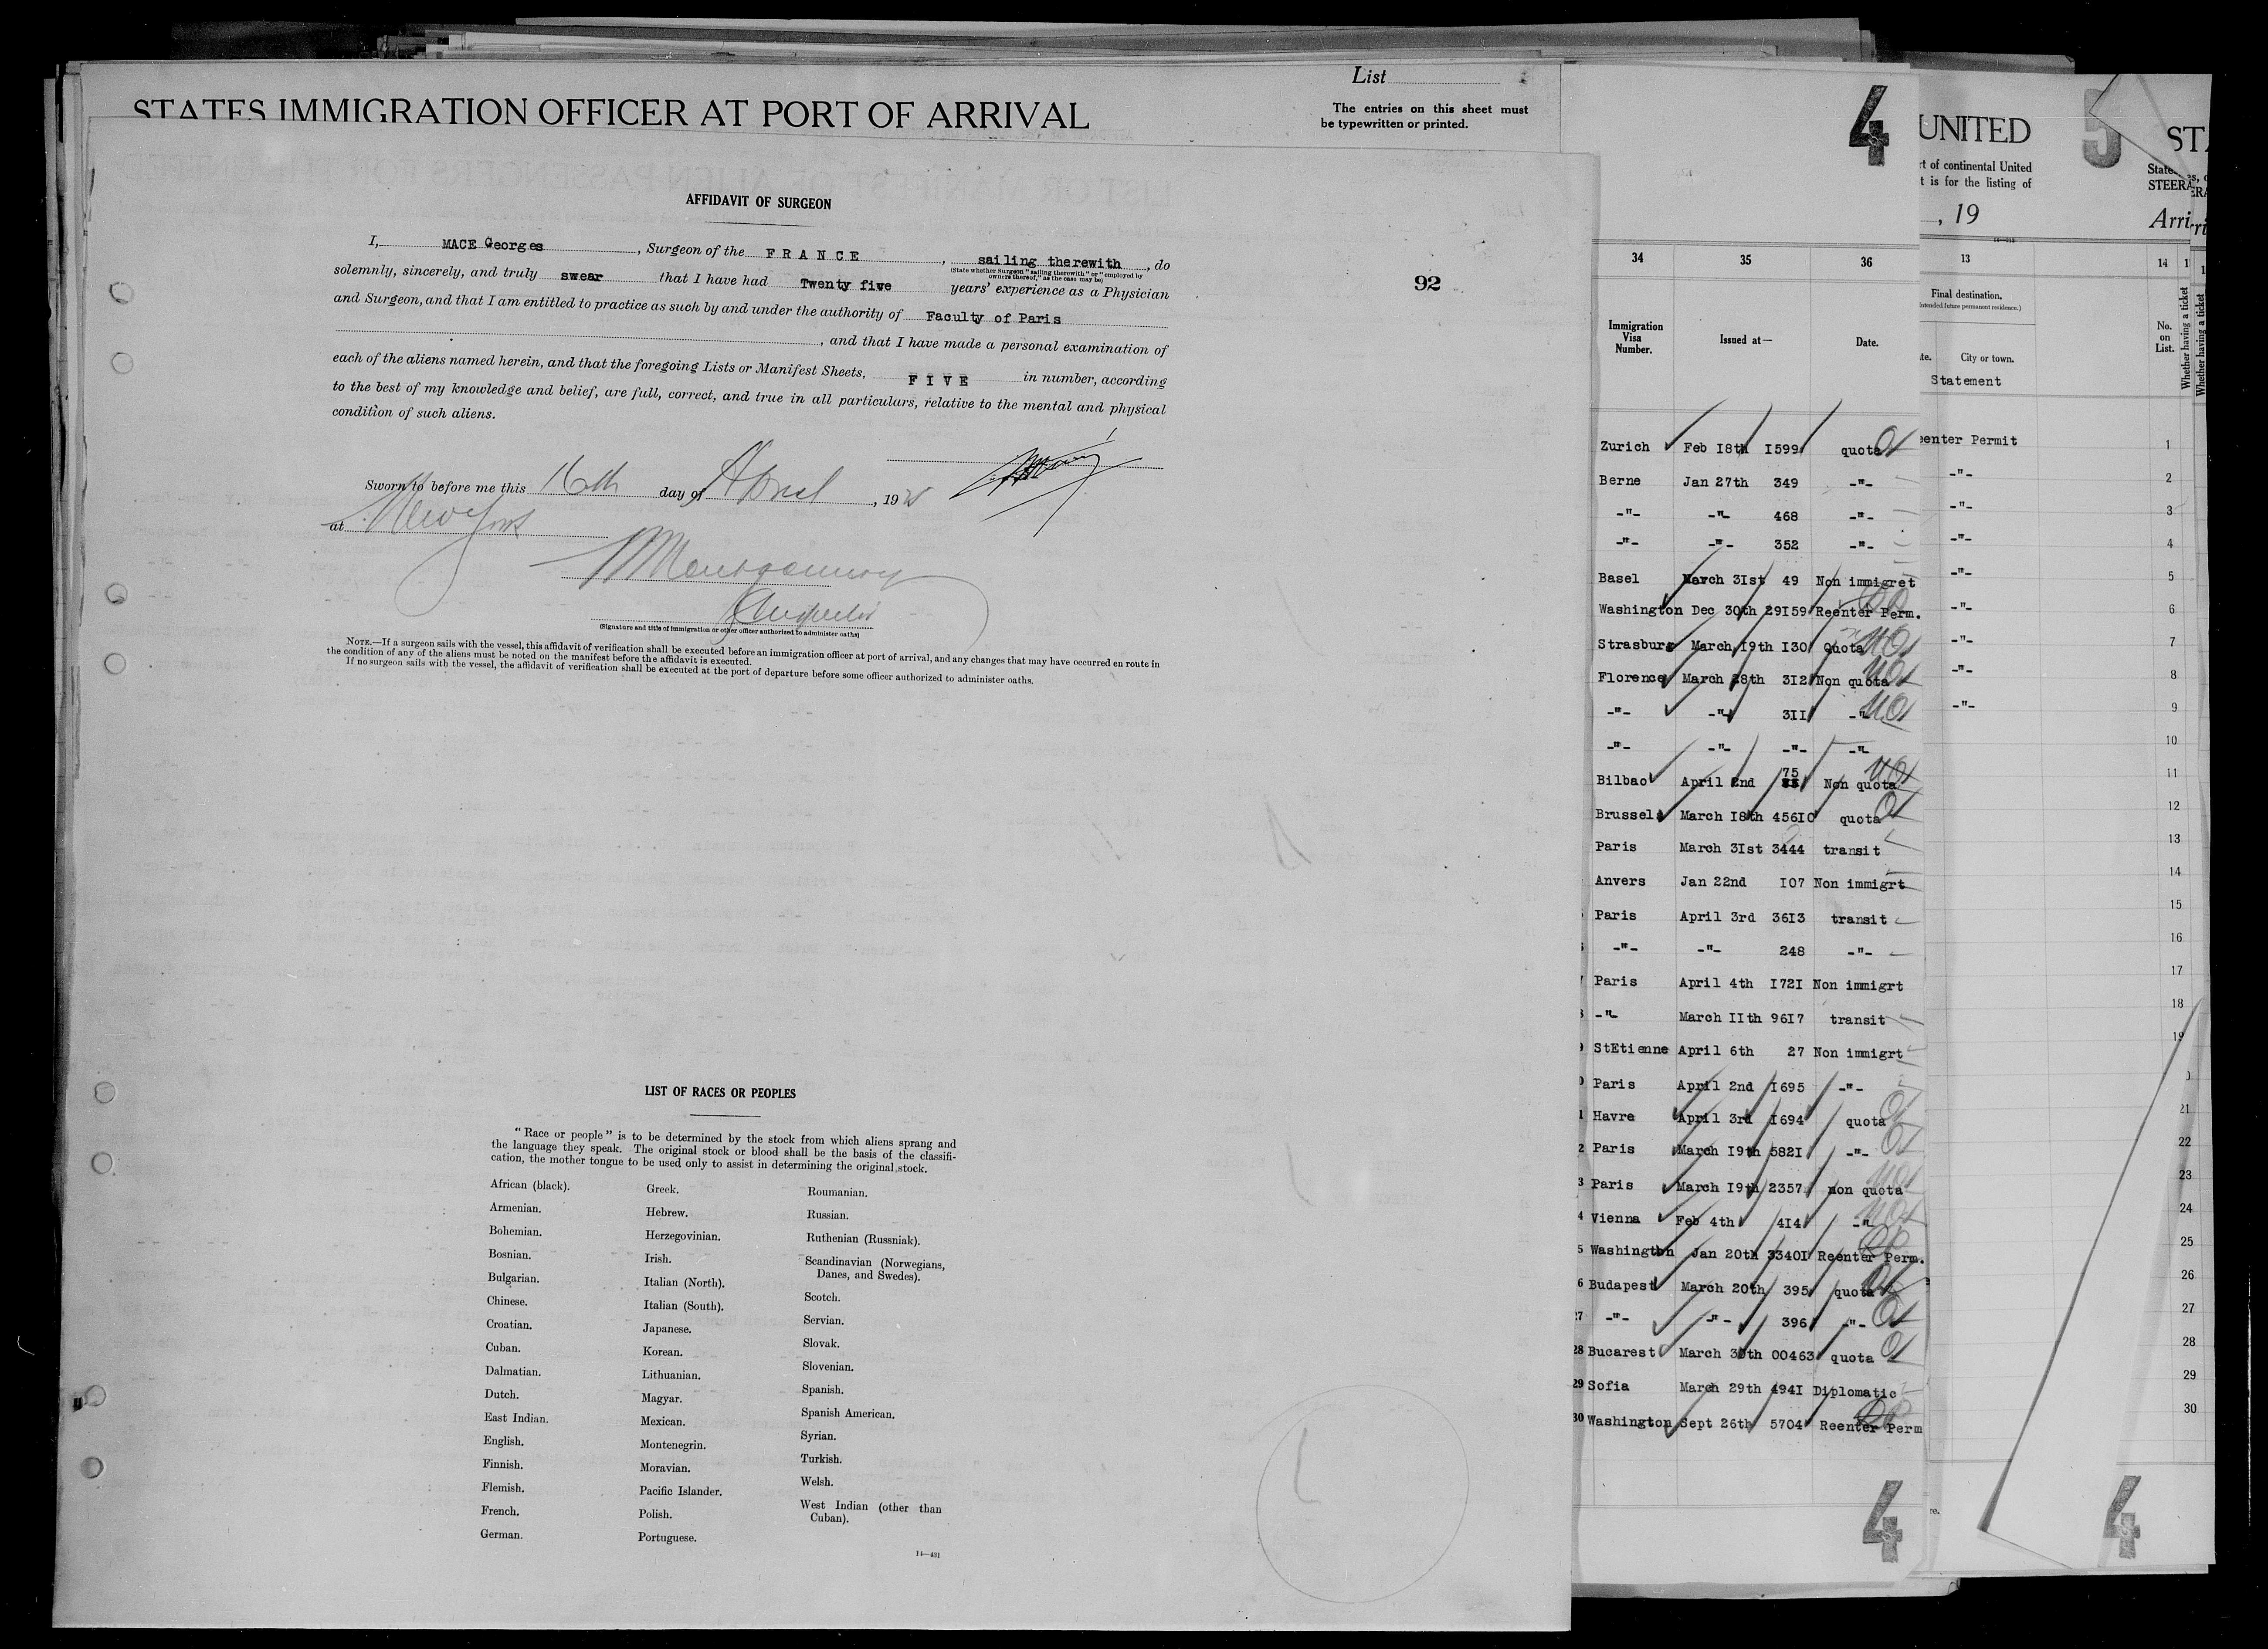 List
STATES IMMIGRATION OFFICER AT PORT OF ARRIVAL
The entries on this sheet must
be typewritten or printed.
AFFIDAVIT OF SURGEON
I, MACE Georges, Surgeon of the FRANCE, sailing therewith, do
(State whether Surgeon "sailing therewith" or "employed by
owners thereof," as the case may be)
solemnly, sincerely, and truly swear that I have had Twenty five years' experience as a Physician
and Surgeon, and that I am entitled to practice as such by and under the authority of Faculty of Paris
, and that I have made a personal examination of
each of the aliens named herein, and that the foregoing Lists or Manifest Sheets, FIVE in number, according
to the best of my knowledge and belief, are full, correct, and true in all particulars, relative to the mental and physical
condition of such aliens.
92
Sworn to before me this 16th day of April, 192
at New York
Montgomery
Inspector
(Signature and title of immigration or other officer authorized to administer oaths)
NOTE.—If a surgeon sails with the vessel, this affidavit of verification shall be executed before an immigration officer at port of arrival, and any changes that may have occurred en route in
the condition of any of the aliens must be noted on the manifest before the affidavit is executed.
If no surgeon sails with the vessel, the affidavit of verification shall be executed at the port of departure before some officer authorized to administer oaths.
LIST OF RACES OR PEOPLES
"Race or people" is to be determined by the stock from which aliens sprang and
the language they speak. The original stock or blood shall be the basis of the classifi-
cation, the mother tongue to be used only to assist in determining the original stock.
African (black).
Armenian.
Bohemian.
Bosnian.
Bulgarian.
Chinese.
Croatian.
Cuban.
Dalmatian.
Dutch.
East Indian.
English.
Finnish.
Flemish.
French.
German.
Greek.
Hebrew.
Herzegovinian.
Irish.
Italian (North).
Italian (South).
Japanese.
Korean.
Lithuanian.
Magyar.
Mexican.
Montenegrin.
Moravian.
Pacific Islander.
Polish.
Portuguese.
Roumanian.
Russian.
Ruthenian (Russniak).
Scandinavian (Norwegians,
Danes, and Swedes).
Scotch.
Servian.
Slovak.
Slovenian.
Spanish.
Spanish American.
Syrian.
Turkish.
Welsh.
West Indian (other than
Cuban).
14—431
4
34 35 36
Immigration
Visa
Number.
Issued at—
Date.
Zurich Feb I8th I599 quota
Berne Jan 27th 349 -"-
-"- -"- 468 -"-
-"- -"- 352 -"-
Basel March 3Ist 49 Non immigret
Washington Dec 30th 29I59 Reenter Perm.
Strasburg March I9th I30 Quota
Florence March 28th 3I2 Non quota
-"- -"- 3II -"-
-"- -"- -"- -"-
Bilbao April 2nd 75 Non quota
Brussels March I8th 456I0 quota
Paris March 3Ist 3444 transit
Anvers Jan 22nd I07 Non immigrt
Paris April 3rd 36I3 transit
-"- -"- 248 -"-
Paris April 4th I72I Non immigrt
-"- March IIth 96I7 transit
StEtienne April 6th 27 Non immigrt
Paris April 2nd I695 -"-
1 Havre April 3rd I694 quota
2 Paris March I9th 582I -"-
3 Paris March I9th 2357 non quota
4 Vienna Feb 4th 4I4 -"-
5 Washington Jan 20th 3340I Reenter Perm.
6 Budapest March 20th 395 quota
27 -"- -"- 396 -"-
28 Bucarest March 30th 00463 quota
29 Sofia March 29th 494I Diplomatic
30 Washington Sept 26th 5704 Reenter Perm
4
UNITED
rt of continental United
t is for the listing of
, 19
13
Final destination.
(Intended future permanent residence.)
City or town.
Statement
eenter Permit
-"-
-"-
-"-
-"-
-"-
-"-
-"-
-"-
5
STA
States
STEERA
Arri
14
No.
on
List.
Whether having a ticket
Whether having a ticket
1
2
3
4
5
6
7
8
9
10
11
12
13
14
15
16
17
18
19
21
22
23
24
25
26
27
28
29
30
4